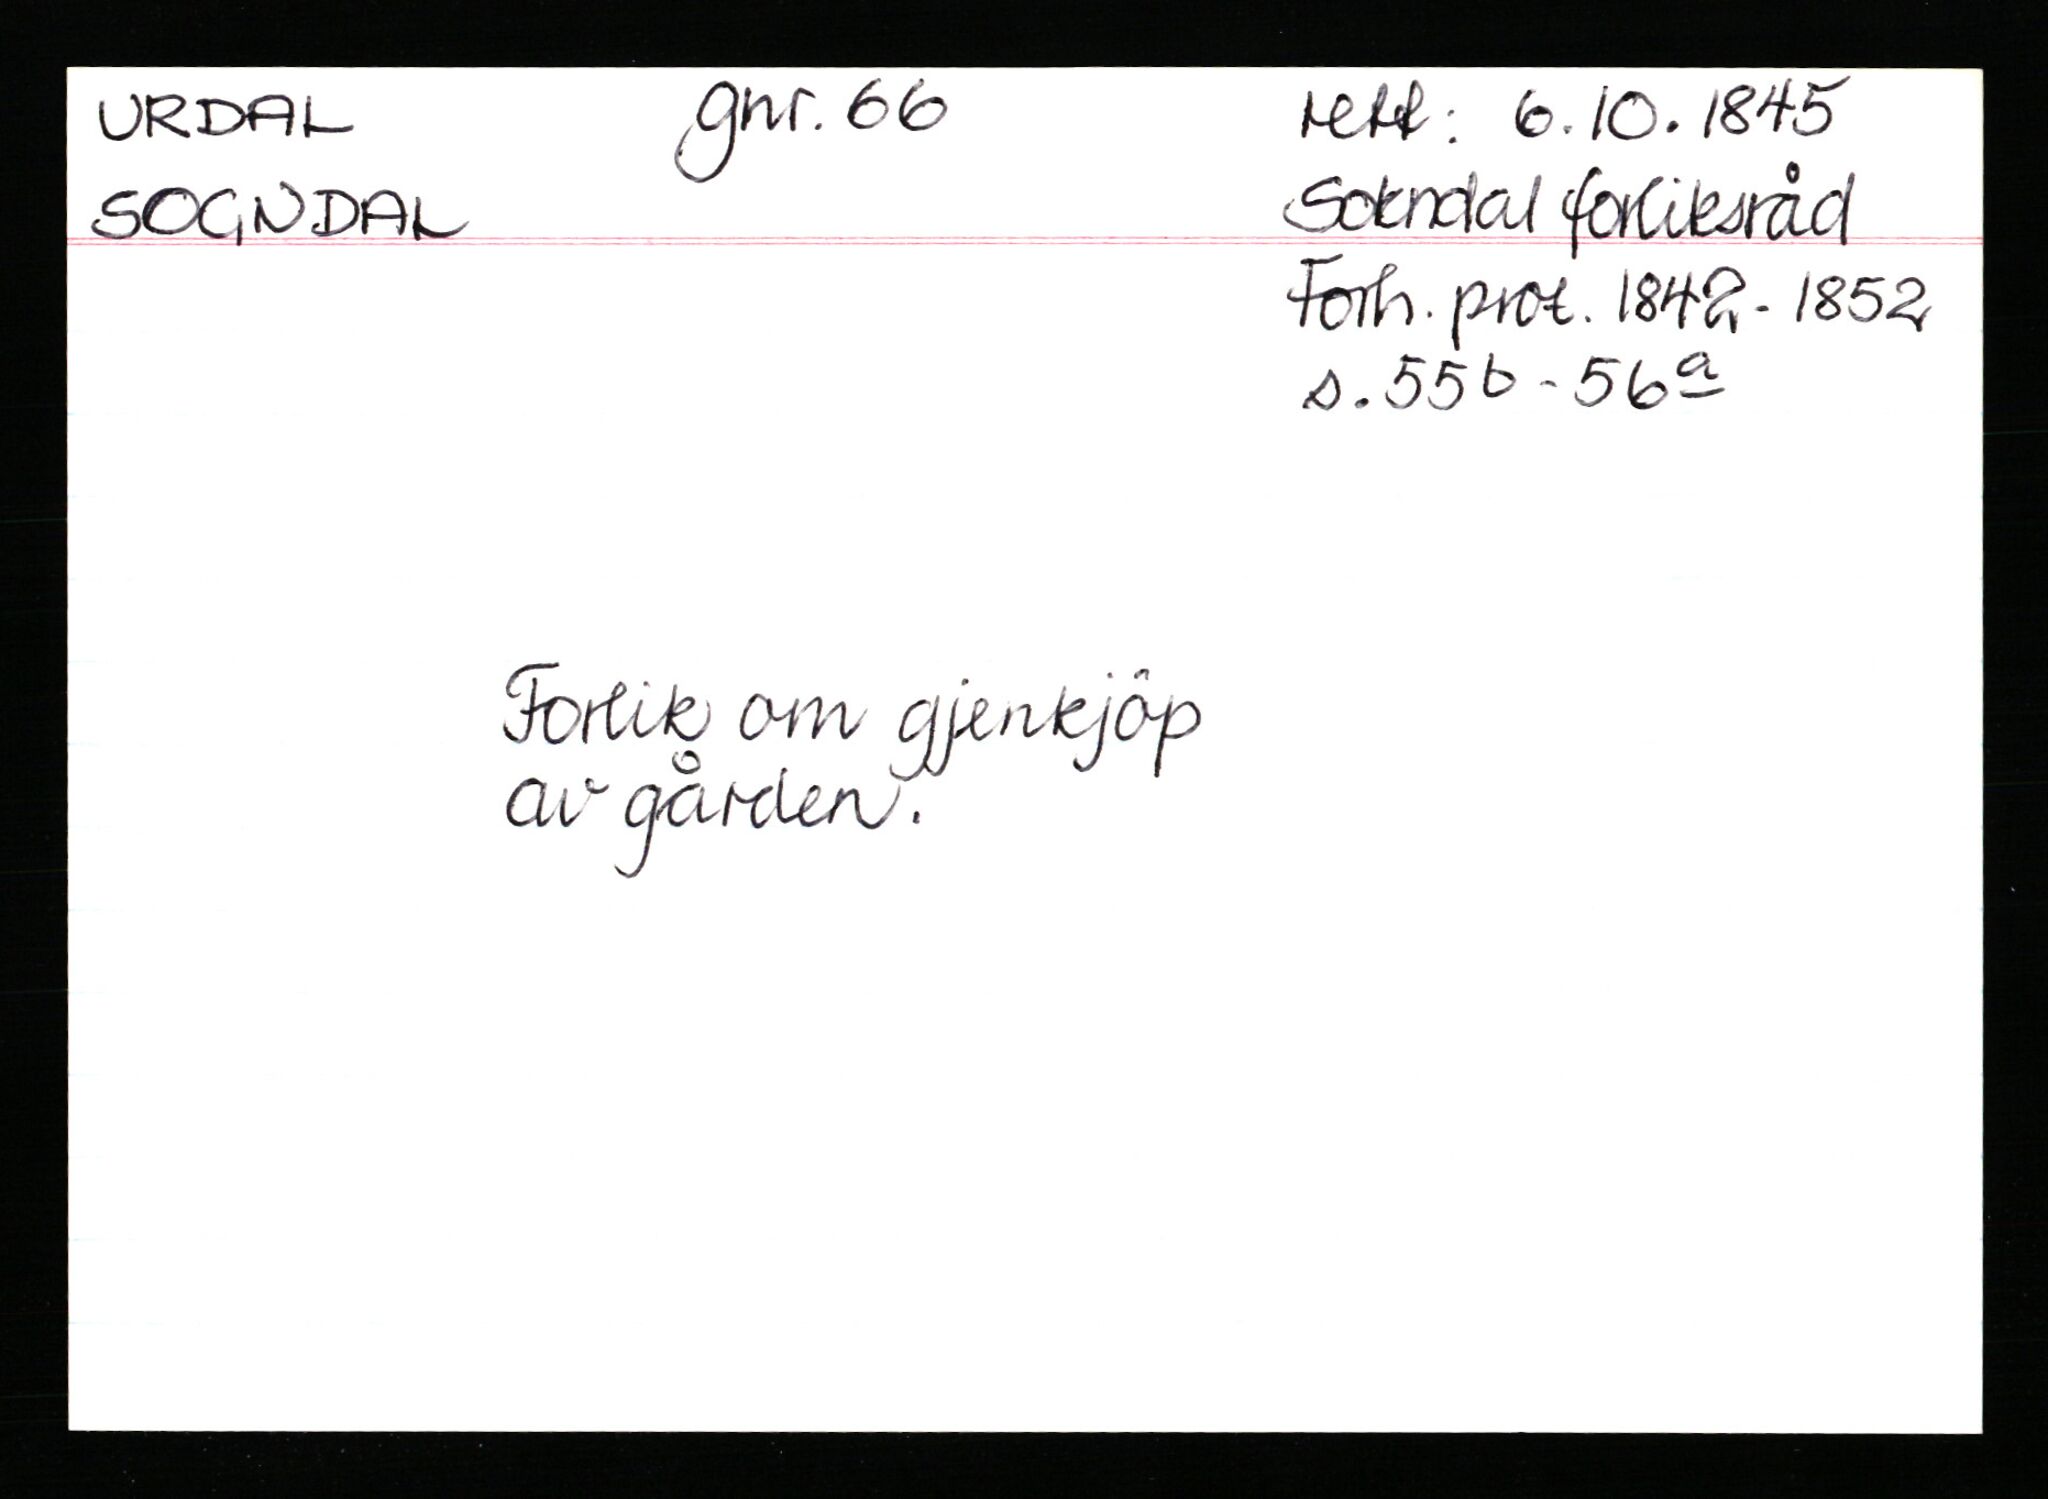 URDAL gnr. 66 rett: 6.10.1845
SOGNDAL Sokndal forliksråd
Forh. prot. 1842-1852
s. 55b - 56a
Forlik om gjenkjöp
av gården.